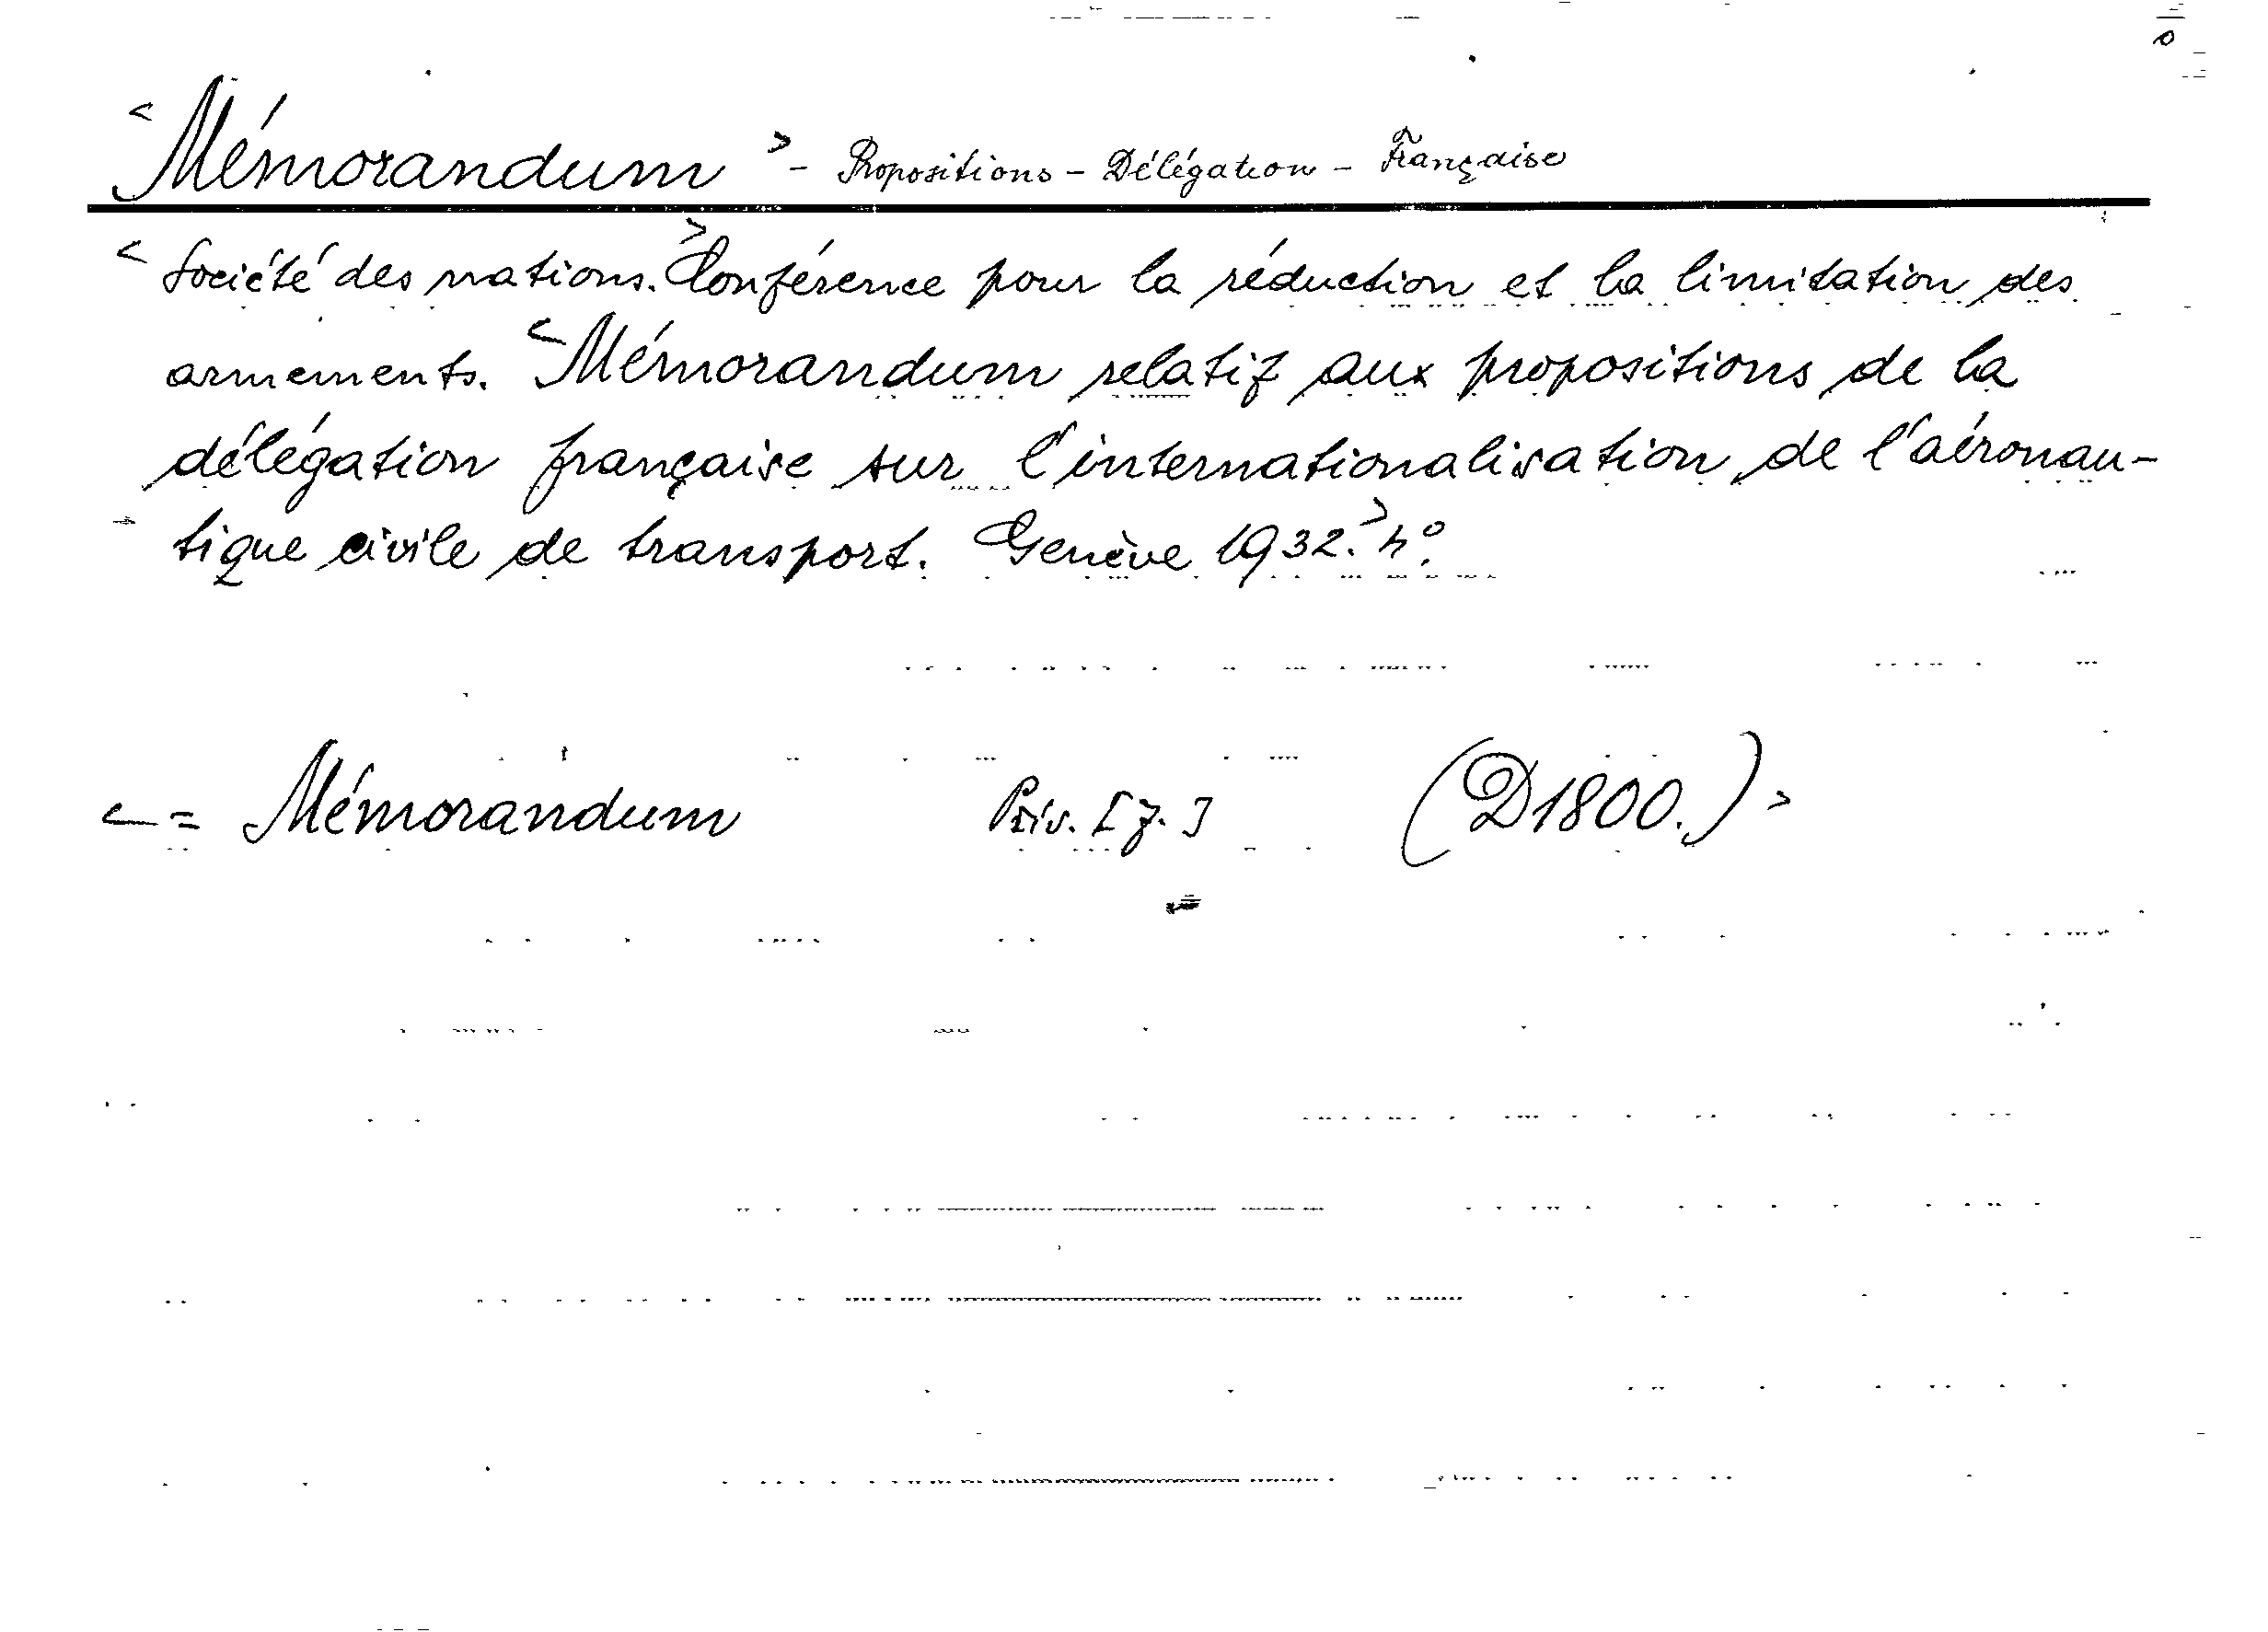 <Mémorandum> - Propositions - Délégation - Française
<Société des nations.> Conférence pour la réduction et la limitation des
armements. <Mémorandum relatif aux propositions de la
délégation française sur l'internationalisation de l'aéronau-
tique civile de transport. Genève 1932.> 4°.
<= Mémorandum Priv. [7.] (D1800.)>